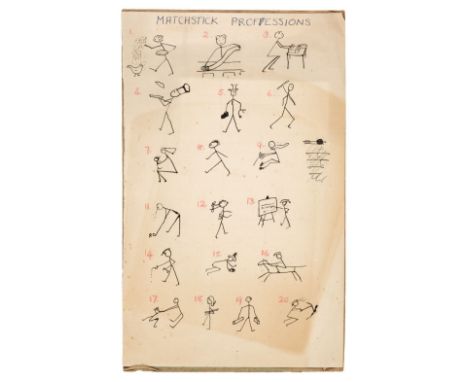 MATCHSTICK PROFESSIONS
1. 2. 3.
4. 5. 6.
7. 8. 9.
11. 12. 13.
14. 15. 16.
17. 18. 19. 20.